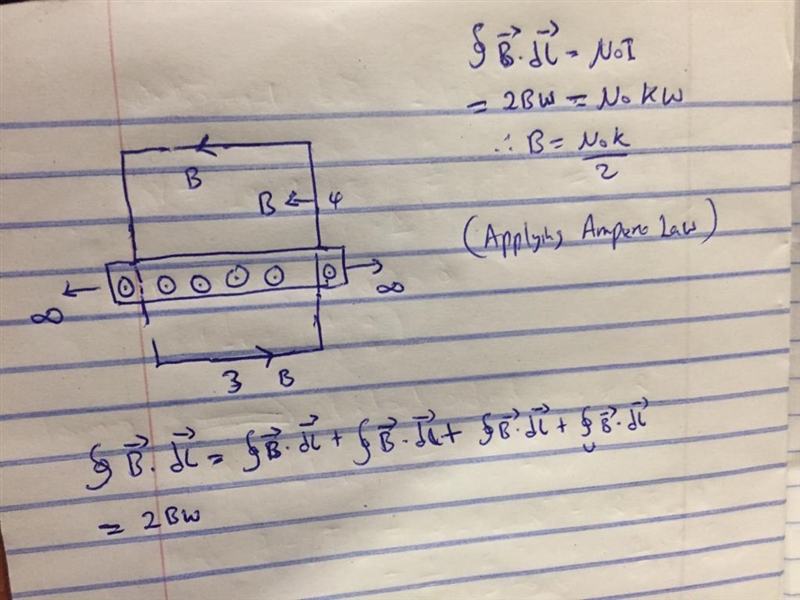 ∮ B⃗ · dl⃗ = μ₀I
= 2Bw = μ₀kw
∴ B = μ₀k / 2
(Applying Ampere Law)
B
B ← 4
∞
∞
3 B
∮ B⃗ · dl⃗ = ∮ B⃗ · dl⃗ + ∮ B⃗ · dl⃗ + ∮ B⃗ · dl⃗ + ∮ B⃗ · dl⃗
= 2Bw